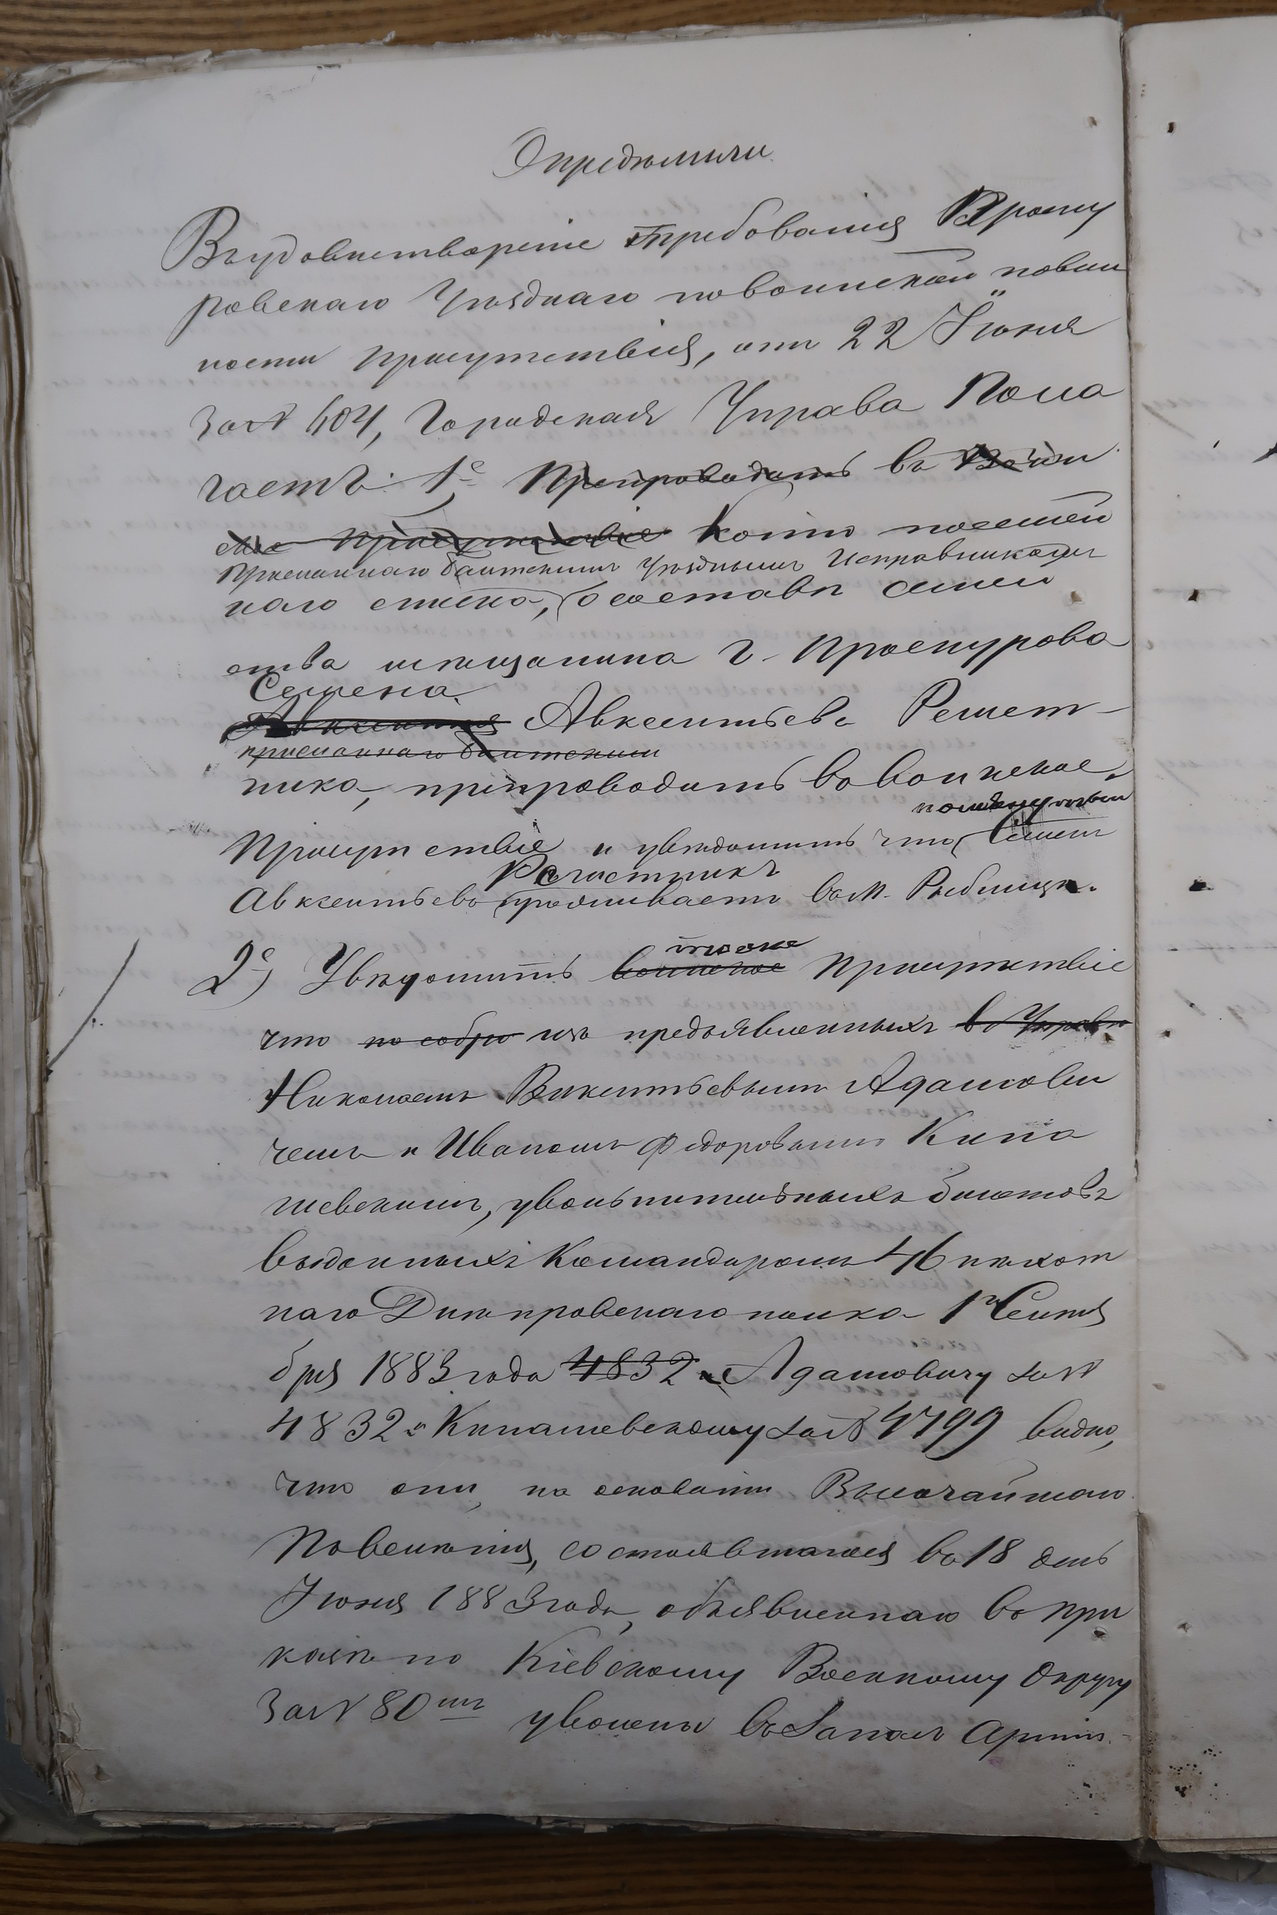 Опредѣлили
Въ удовлетвореніе требованія Проску
ровскаго Уѣзднаго по воинской повин
ности присутствія, отъ 22 Іюня
за № 404, Городская Управа Пола
гаетъ: 1е, Препроводить въ Воин
ское Присутствіе Копію посемей
присланнаго Балтскимъ Уѣзднымъ Исправникомъ
наго списка, о составѣ семей
ства мѣщанина г. Проскурова
Семена
Авксентія Авксентьева Решет-
присланнаго Балтскимъ
ника, препроводить во воинское
Присутствіе и увѣдомить что Семенъ
Решетникъ
Авксентьевъ проживаетъ въ м. Рыбница.
2е) Увѣдомить воинское Присутствіе
тоже
что по собра изъ предъявленныхъ въ Управѣ
Николаемъ Викентьевымъ Адамови
чемъ и Иваномъ Федоровымъ Кина
шевскимъ, увольнительныхъ билетовъ
выданныхъ Командиромъ 46 пѣхот
наго Днѣпровскаго полка 1го Сентя
бря 1883 года 4832 Адамовичу за №
4832 и Кинашевскому за № 4799 видно,
что они, на основаніи Высочайшаго
Повелѣнія, состоявшагося въ 18 день
Іюня 1883 года, объявленнаго въ при
казѣ по Кіевскому Военному Округу
За № 80мъ уволены въ Запасъ Арміи.